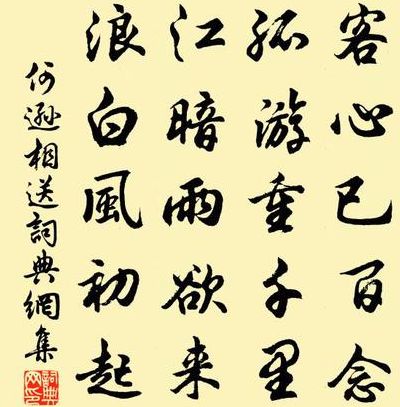 客心已百念
孤游重千里
江暗雨欲来
浪白風初起
何遜相送詞典網集